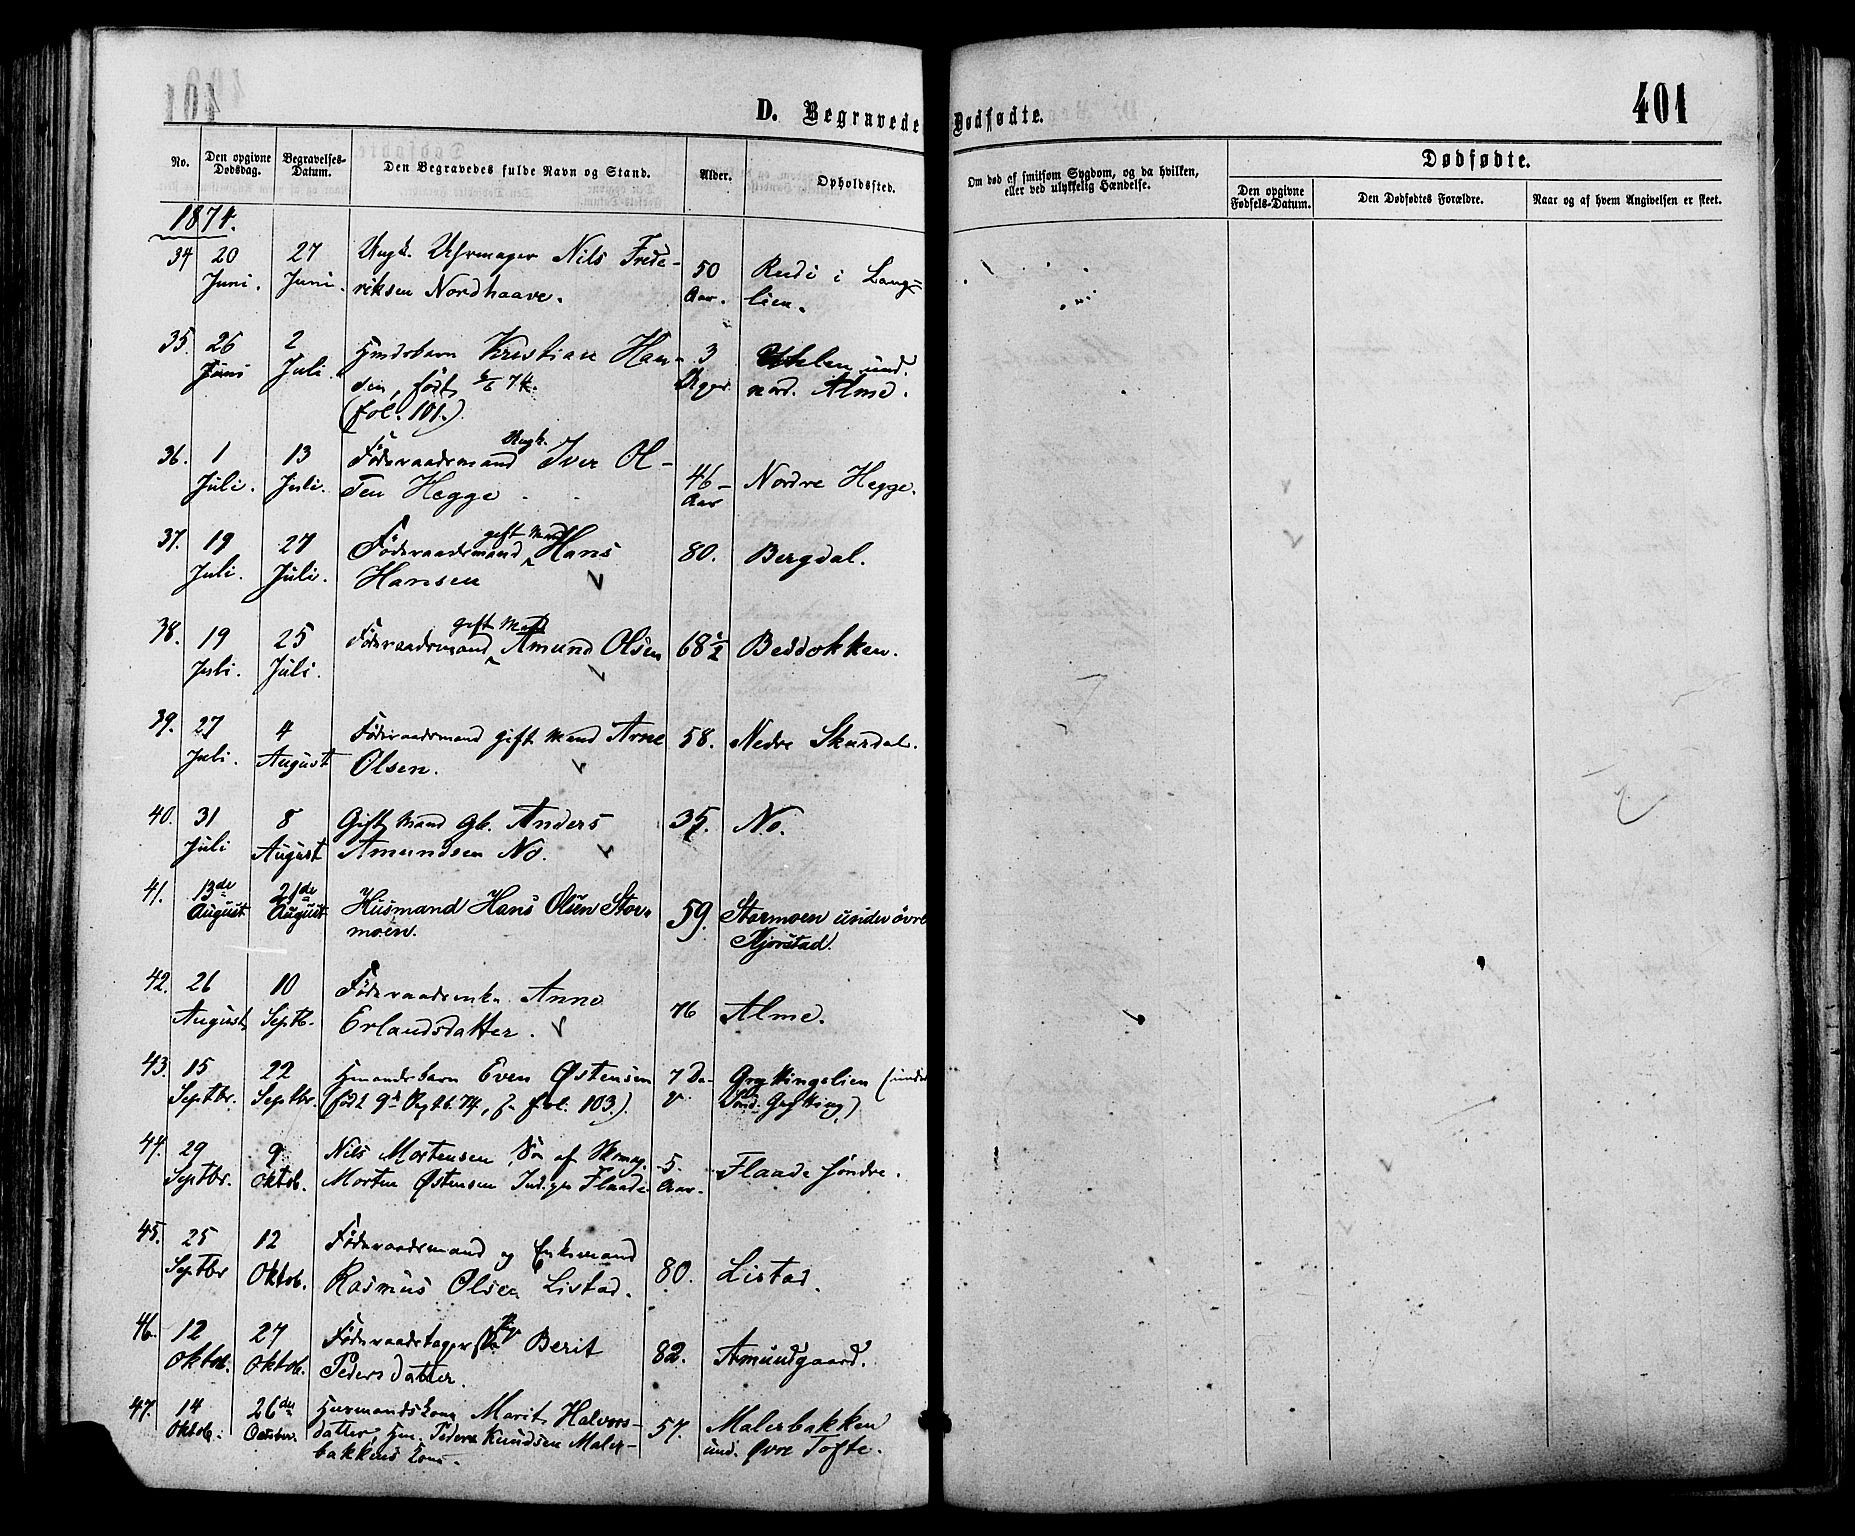 401
D. Begravede
Dødfødte.
401
No.
Den opgivne Dødsdag.
Begravelses-Datum.
Den Begravedes fulde Navn og Stand.
Alder.
Opholdssted.
Om død af smitsom Sygdom, og da hvilken, eller ved ulykkelig Hændelse.
Dødfødte.
Den opgivne Fødsels-Datum.
Den Dødfødtes Forældre.
Naar og af hvem Angivelsen er skeet.
1874.
34 20 Juni. 27 Juni. Ungk. Uhrmager Nils Frede-
riksen Nordhaave. 50 Aar. Rudi i Lang=
lien.
35. 26 Juni 2 Juli. Hmdsbarn Kristian Han-
sen, født 74.
(fol. 101.) 3 Uger und.
nord. Alme.
36. 1 Juli. 13 Juli. Føderaadsmand Ungk. Iver Ol-
sen Hegge. 46 Aar Nordre Hegge.
37. 19 Juli. 27 Juli. Føderaadsmand gift Mand Hans
Hansen 80. Bergdal.
38. 19 Juli. 25 Juli. Føderaadsmand gift Mand Amund Olsen 68 1/2 Beddokken.
39. 27 Juli. 4 August Føderaadsmand gift Mand Arne
Olsen. 58. Nedre Skurdal.
40. 31 Juli 8 August Gift Mand Gb. Anders
Amundsen No. 35. No.
41. 13de August 21de August Husmand Hans Olsen Stor-
moen. 59. Stormoen under övre
Kjorstad.
42. 26 August 10 Septb. Føderaadsenke Anne
Erlandsdatter. 76 Alme.
43. 15 Septbr. 22 Septbr. Hmandsbarn Even Østensen
(født 9d Septb. 74, fol. 103.) 7 Da-
ge Grytingslien (under
Sönd. Gryting)
44. 29 Septbr. 9 Oktob. Nils Mortensen, Sön af Skomag.
Morten Østensen Flaade 5. Aar. Flaade söndre.
45. 25 Septbr 12 Oktob. Føderaadsmand og Enkemand
Rasmus Olsen Listad. 80. Listad.
46. 12 Oktob. 27 Oktob. Føderaadstagerske Berit
Pedersdatter. 82. Amundgaard.
47. 14 Oktob. 26de October. Husmandskone Marit Halvors-
datter, Hm. Peder Knudsen Maler-
bakkens Kone. 57. Malerbakken
und. Øvre Tofte.